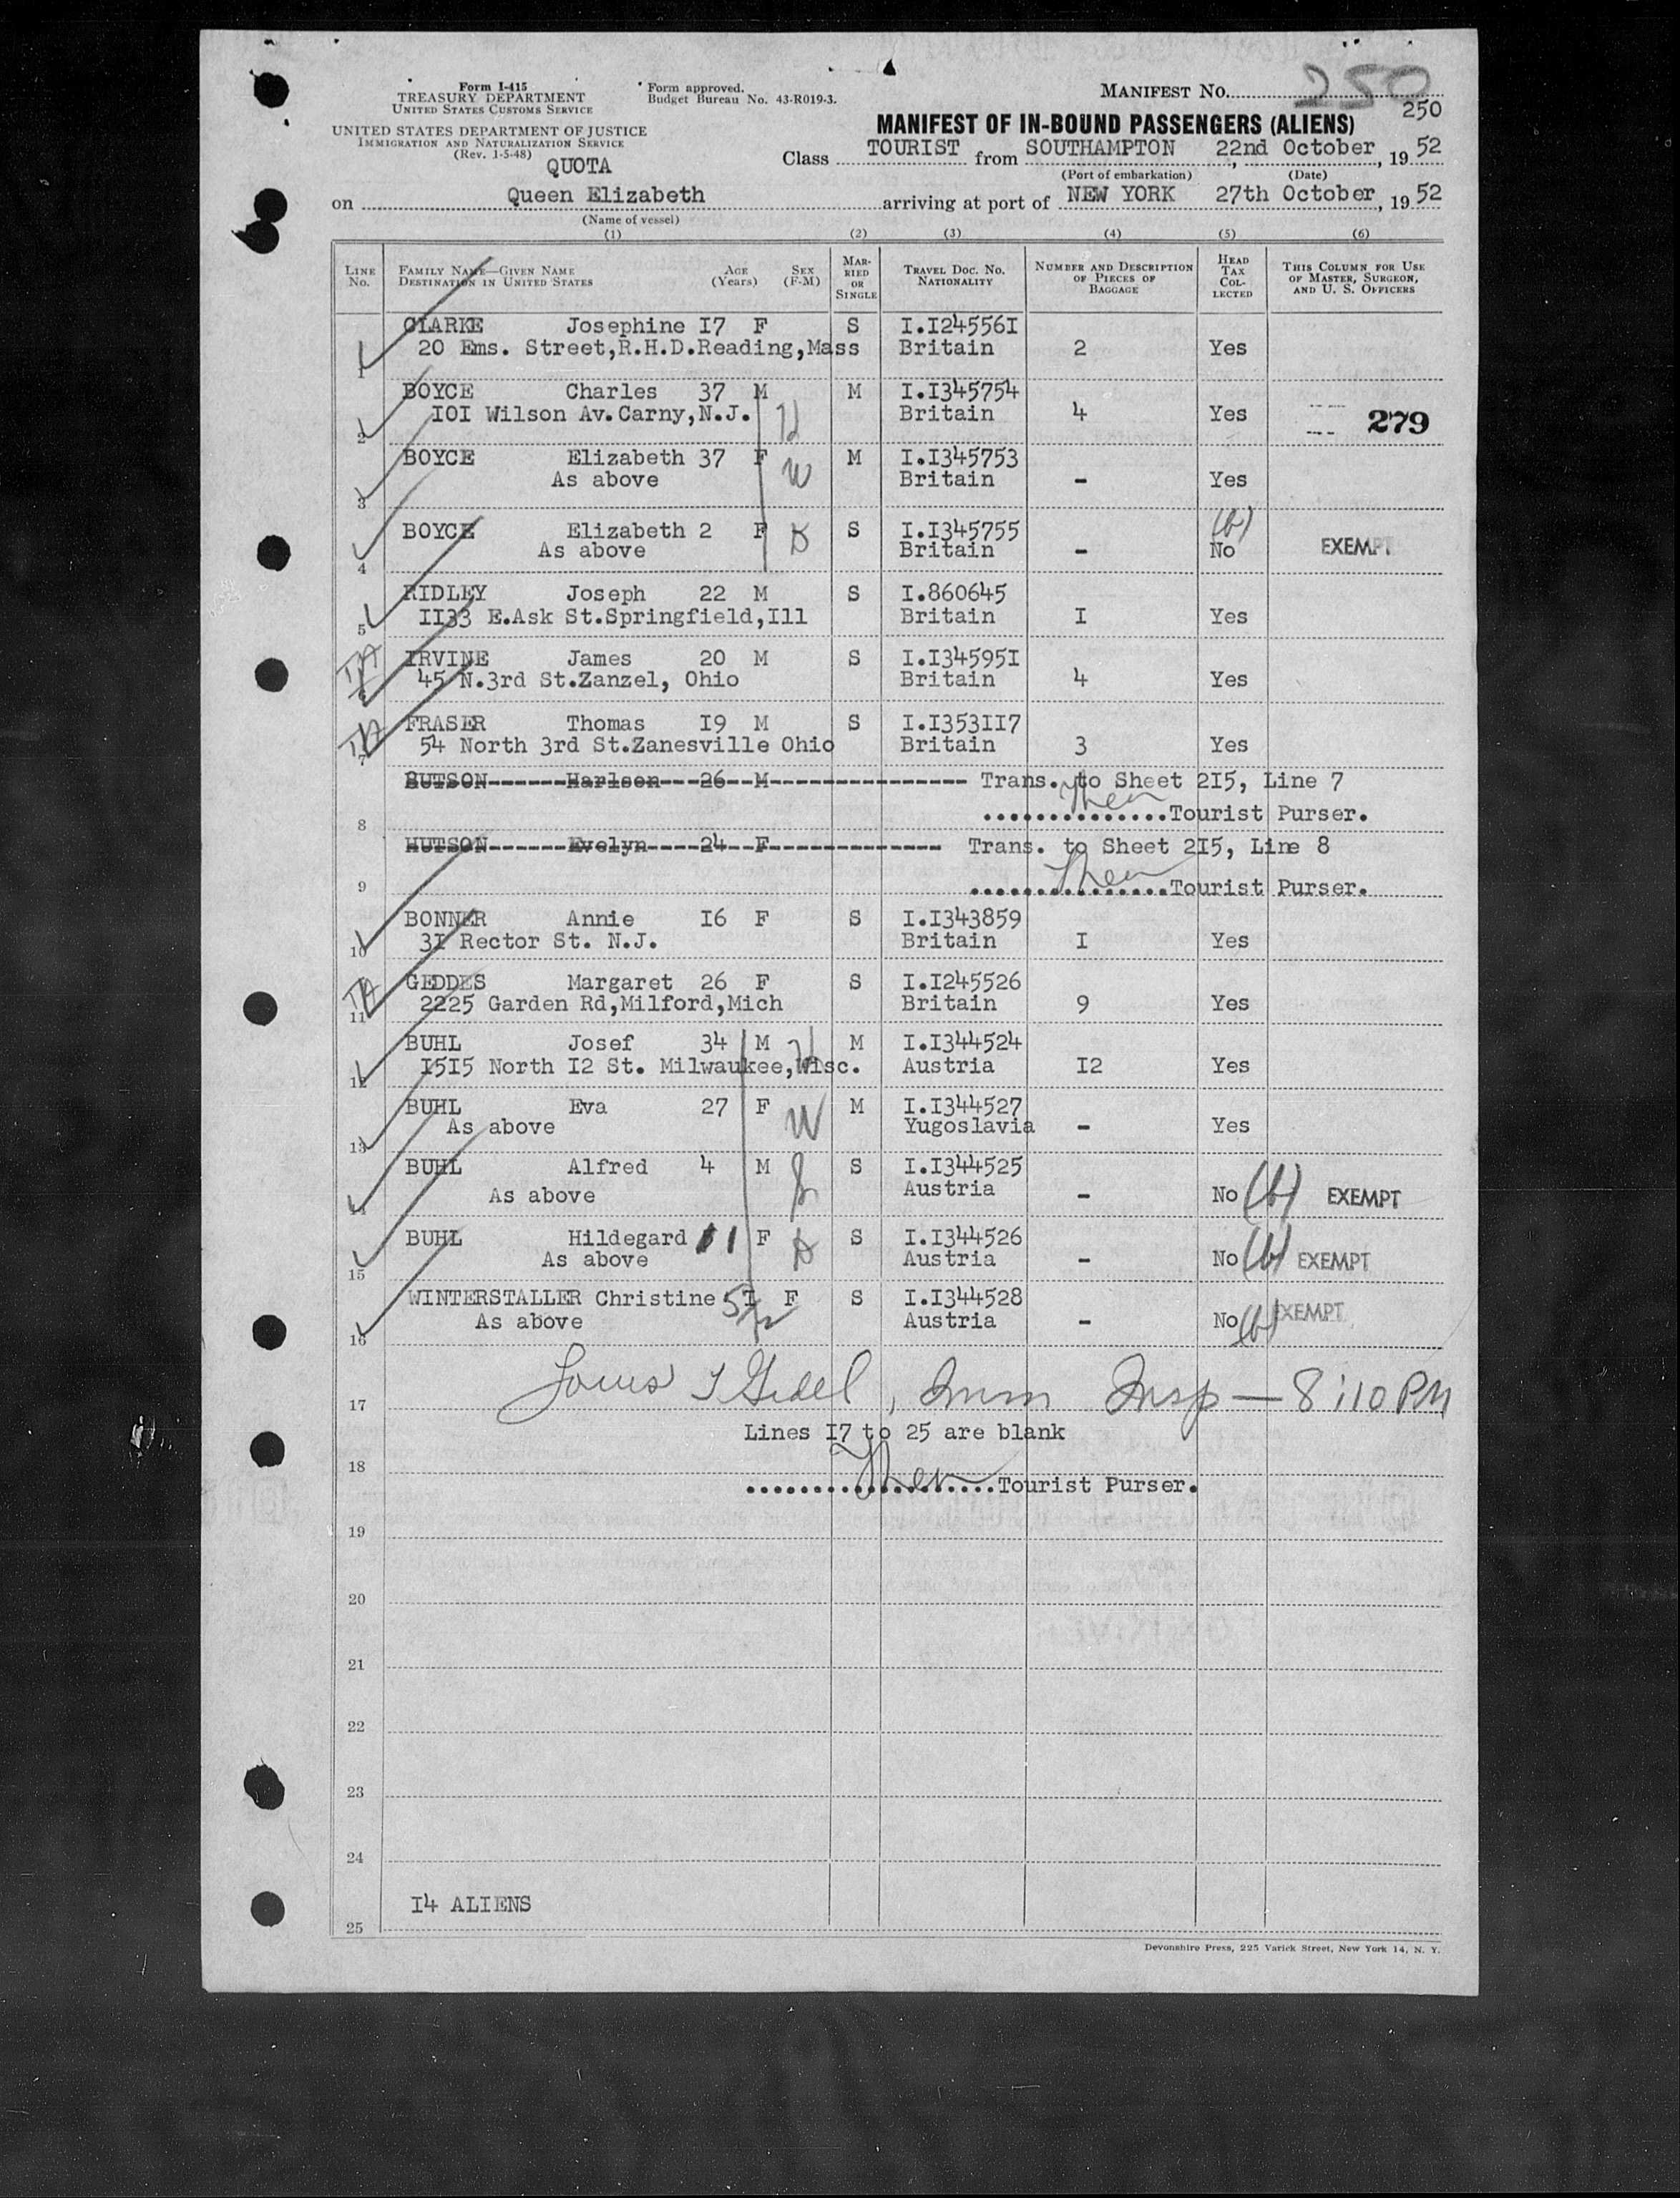 Form I-415
TREASURY DEPARTMENT
UNITED STATES CUSTOMS SERVICE
UNITED STATES DEPARTMENT OF JUSTICE
IMMIGRATION AND NATURALIZATION SERVICE
(Rev. 1-5-48)
QUOTA
Form approved.
Budget Bureau No. 43-R019-3.
MANIFEST No. 250
250
MANIFEST OF IN-BOUND PASSENGERS (ALIENS)
Class TOURIST from SOUTHAMPTON 22nd October, 19 52
(Port of embarkation) (Date)
on Queen Elizabeth arriving at port of NEW YORK 27th October, 19 52
(Name of vessel)
(1) (2) (3) (4) (5) (6)
LINE No. FAMILY NAME—GIVEN NAME DESTINATION IN UNITED STATES AGE (Years) SEX (F-M) MARRIED OR SINGLE TRAVEL DOC. NO. NATIONALITY NUMBER AND DESCRIPTION OF PIECES OF BAGGAGE HEAD TAX COLLECTED THIS COLUMN FOR USE OF MASTER, SURGEON, AND U. S. OFFICERS
CLARKE Josephine I7 F S I.I24556I
1 20 Ems. Street,R.H.D.Reading,Mass Britain 2 Yes
BOYCE Charles 37 M M I.I345754
2 IOI Wilson Av.Carny,N.J. H Britain 4 Yes 279
BOYCE Elizabeth 37 F M I.I345753
3 As above W Britain - Yes
BOYCE Elizabeth 2 F D S I.I345755 (b)
4 As above Britain - No EXEMPT
RIDLEY Joseph 22 M S I.860645
5 II33 E.Ask St.Springfield,Ill Britain I Yes
IRVINE James 20 M S I.I34595I
6 45 N.3rd St.Zanzel, Ohio Britain 4 Yes
FRASER Thomas I9 M S I.I353II7
7 54 North 3rd St.Zanesville Ohio Britain 3 Yes
HUTSON------Harlsen---26--M--------------- Trans. to Sheet 2I5, Line 7
8 ..............Tourist Purser.
HUTSON------Evelyn----24--F------------- Trans. to Sheet 2I5, Line 8
9 ...............Tourist Purser.
BONNER Annie I6 F S I.I343859
10 3I Rector St. N.J. Britain I Yes
GEDDES Margaret 26 F S I.I245526
11 2225 Garden Rd,Milford,Mich Britain 9 Yes
BUHL Josef 34 M H M I.I344524
12 I5I5 North I2 St. Milwaukee,Wisc. Austria I2 Yes
BUHL Eva 27 F W M I.I344527
13 As above Yugoslavia - Yes
BUHL Alfred 4 M S S I.I344525
14 As above Austria - No (b) EXEMPT
BUHL Hildegard 1 F D S I.I344526
15 As above Austria - No (b) EXEMPT
WINTERSTALLER Christine 5½ F S I.I344528
16 As above Austria - No (b) EXEMPT
17 Louis I Gidel, Imm Insp — 8:10 PM
Lines I7 to 25 are blank
18 ...................Tourist Purser.
19
20
21
22
23
24
I4 ALIENS
25
Devonshire Press, 225 Varick Street, New York 14, N. Y.